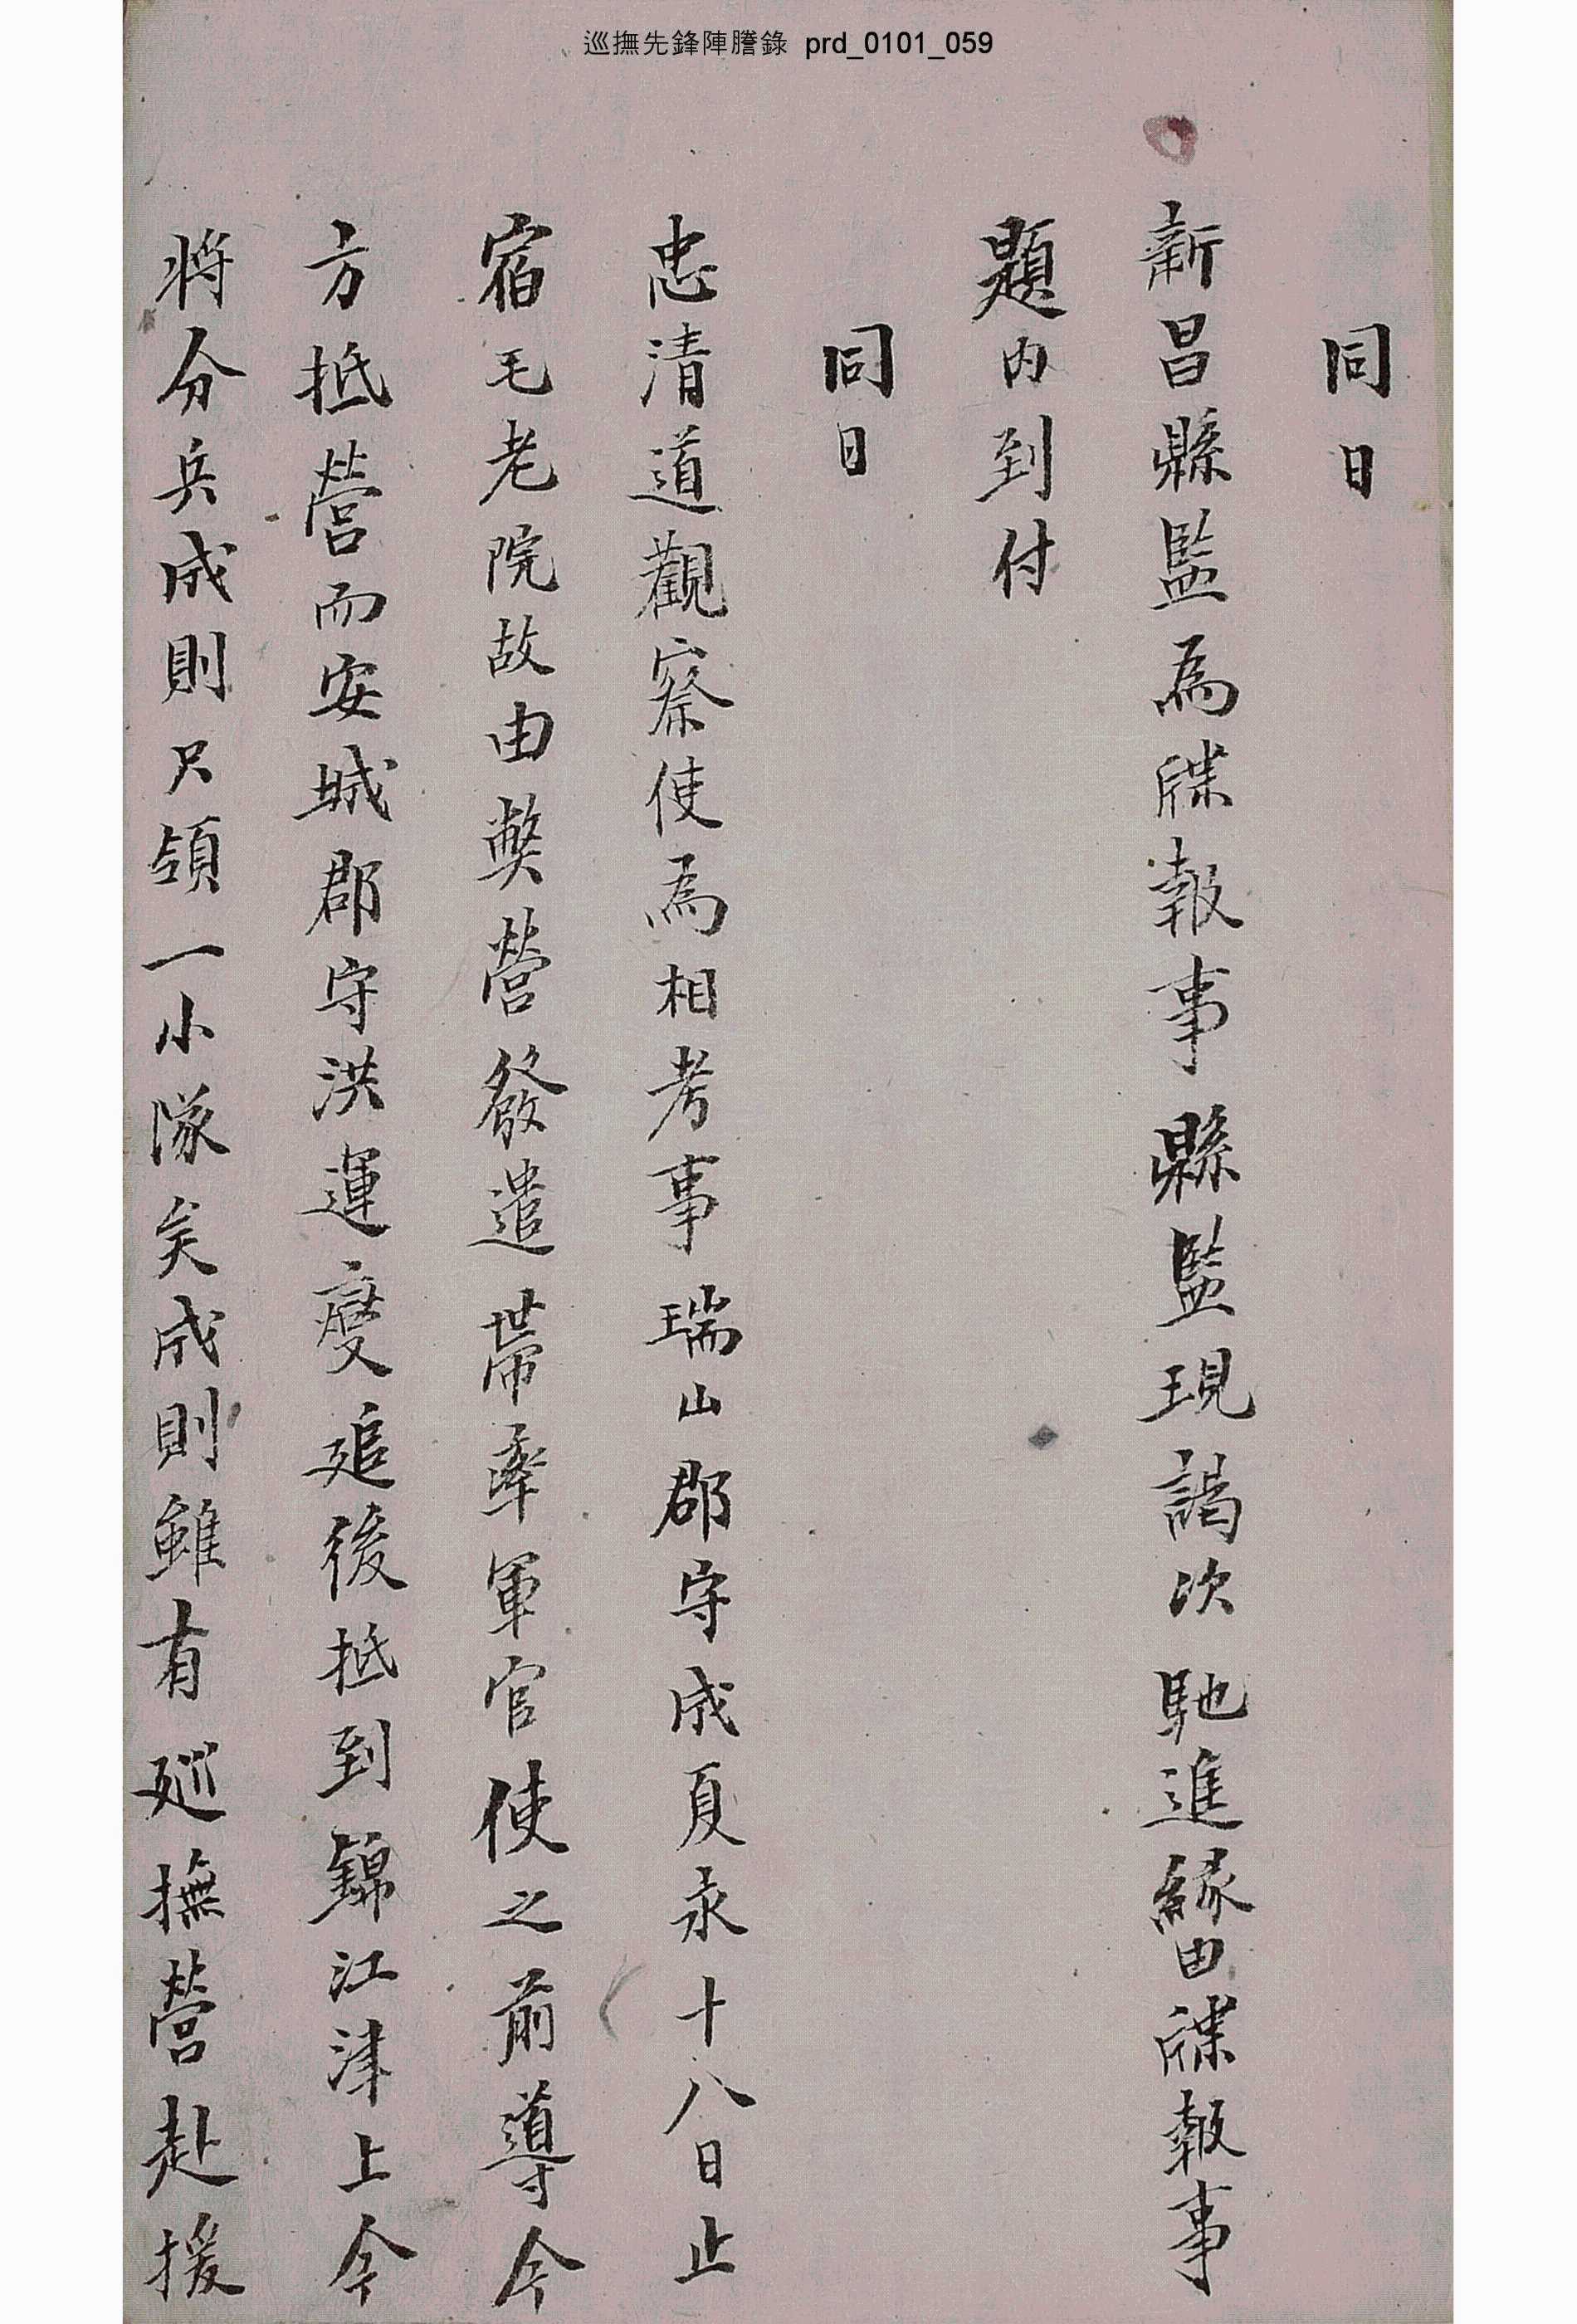 巡撫先鋒陣謄錄 prd_0101_059
同日
新昌縣監爲牒報事縣監現謁次馳進緣由牒報事
題內到付
同日
忠清道觀察使爲相考事瑞山郡守成夏永十八日止
宿毛老院故由弊營發遣帶率軍官使之前導今
方抵營而安城郡守洪運燮追後抵到錦江津上今
將分兵成則只領一小隊矣成則雖有巡撫營赴援